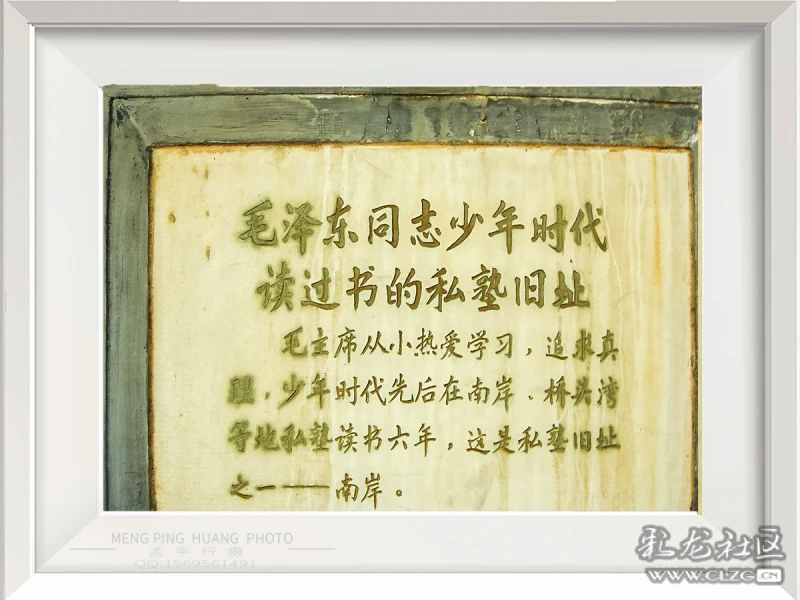 毛泽东同志少年时代
读过书的私塾旧址
毛主席从小热爱学习，追求真
理，少年时代先后在南岸、桥头湾
等地私塾读书六年，这是私塾旧址
之一——南岸。
MENG PING HUANG PHOTO
孟平行摄
QQ:1569561491
乳龙社区
WWW.CLZG.CN